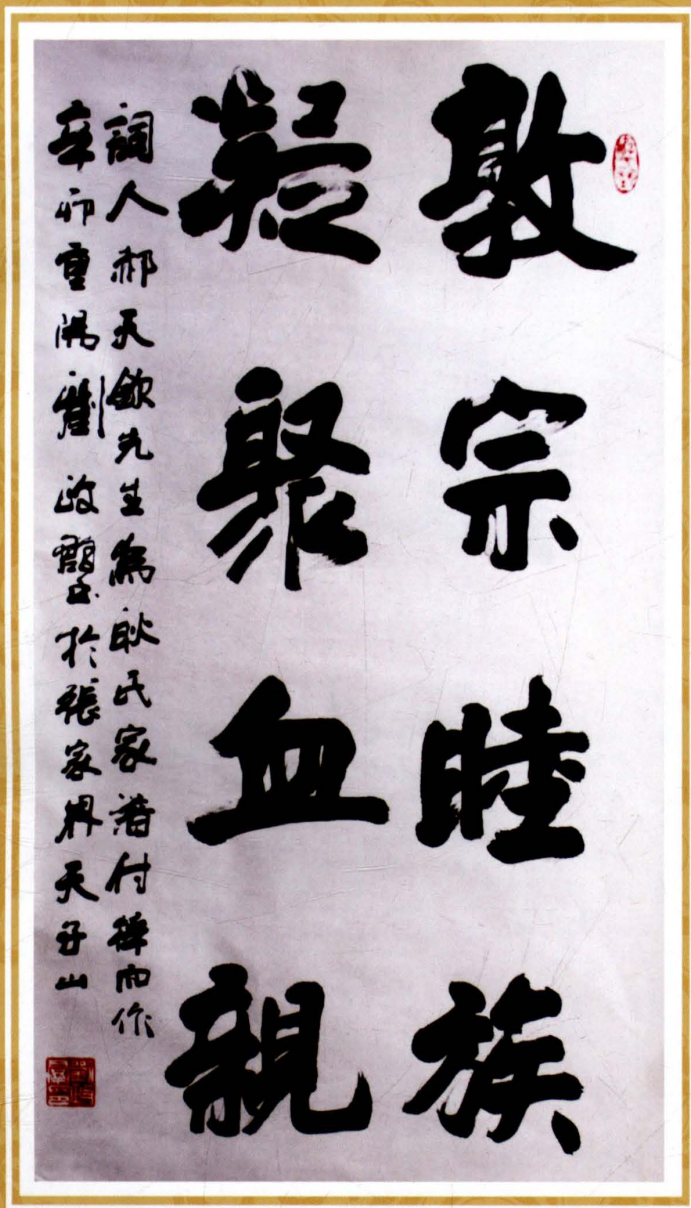 敦宗睦族
凝聚血親
詞人郝天欽先生為耿氏家譜付梓而作
辛卯重陽劉政書於張家界天子山